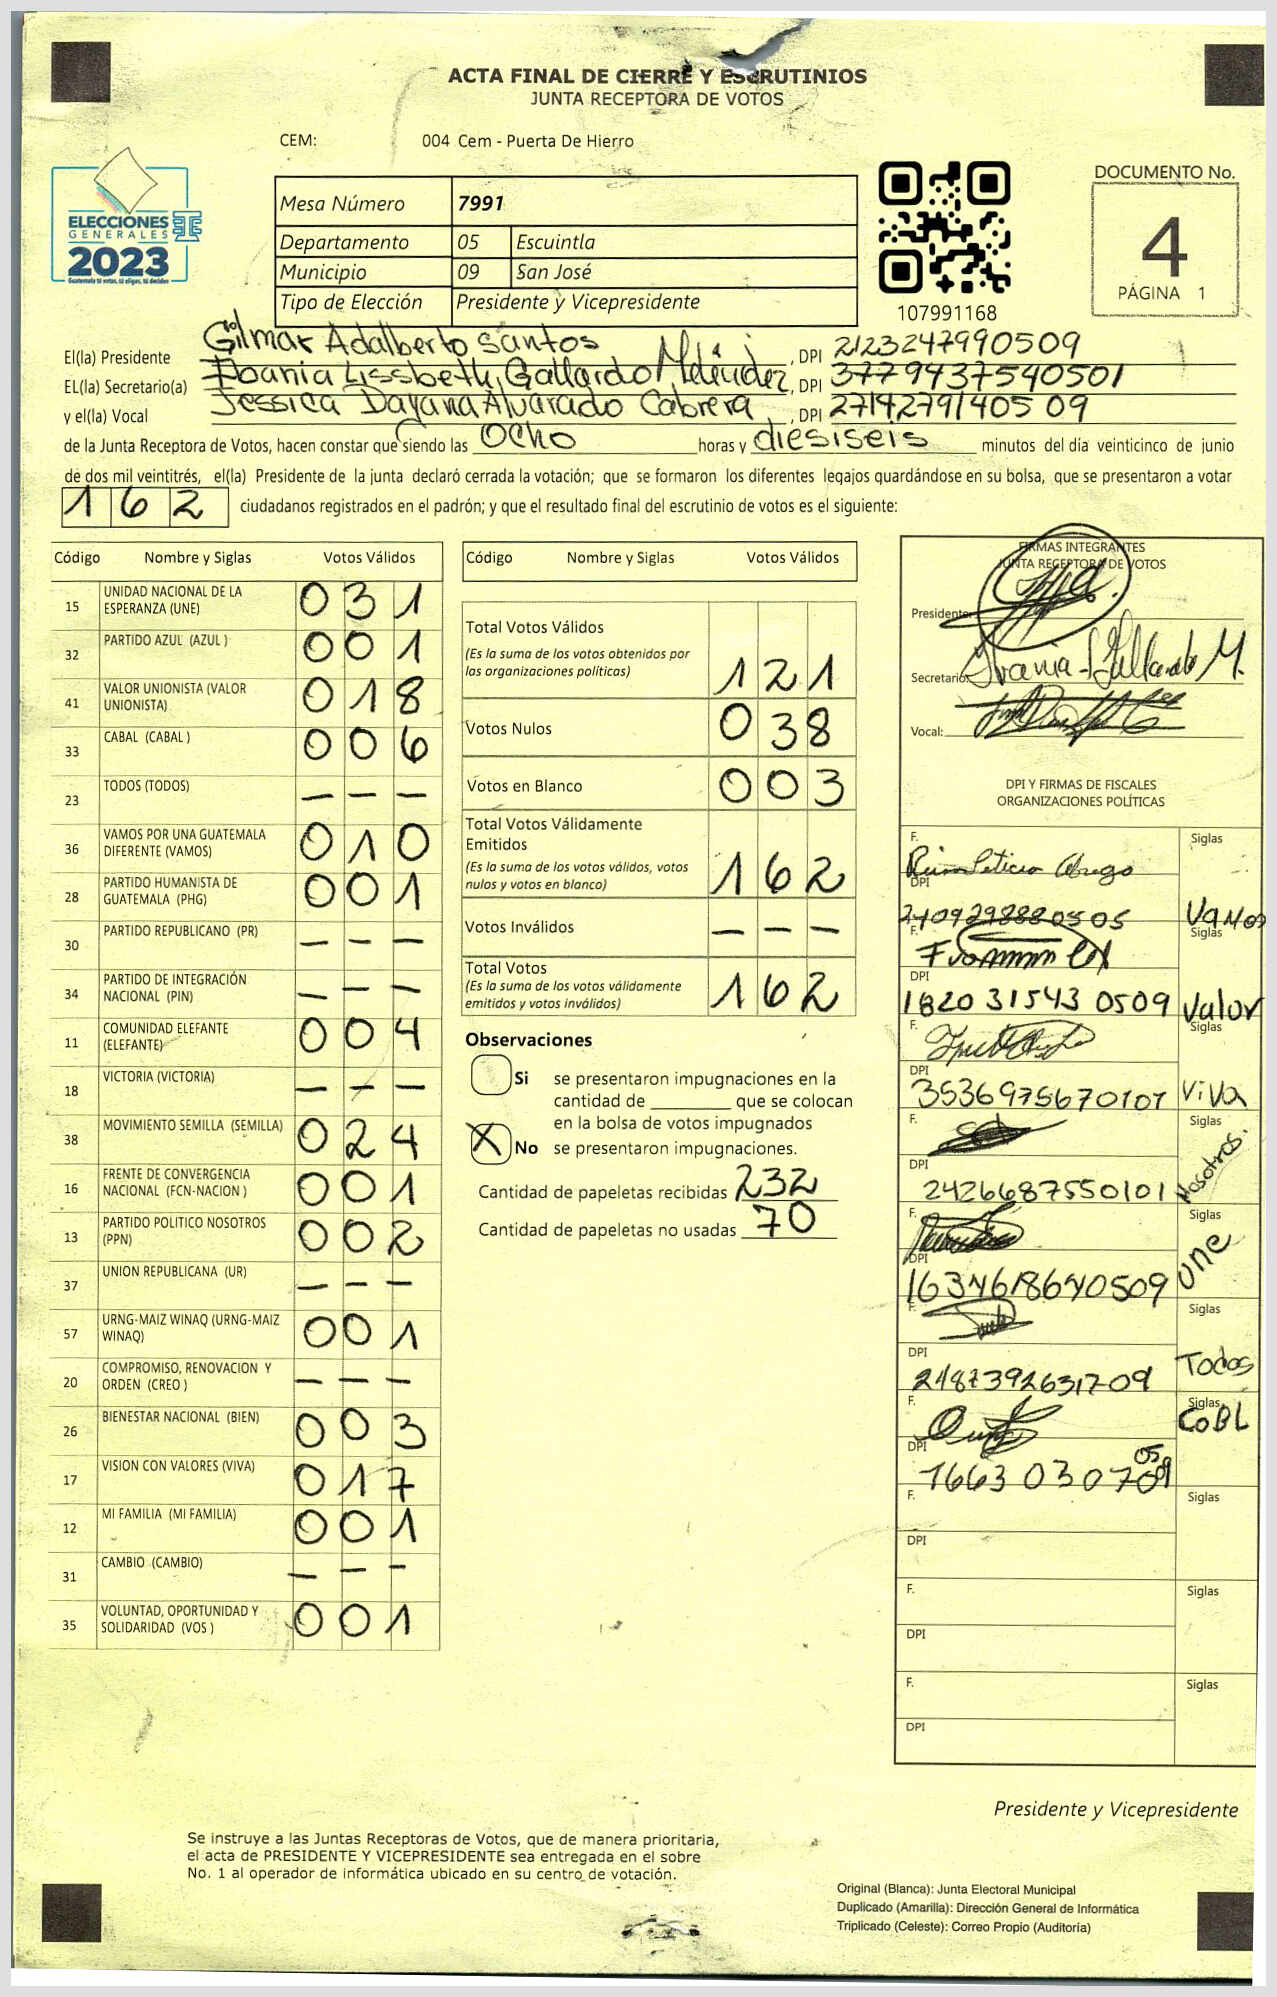 ACTA FINAL DE CIERRE Y ESCRUTINIOS
JUNTA RECEPTORA DE VOTOS
CEM: 004 Cem - Puerta De Hierro
ELECCIONES
GENERALES
2023
Guatemala tú votas, tú eliges, tú decides
Mesa Número 7991
Departamento 05 Escuintla
Municipio 09 San José
Tipo de Elección Presidente y Vicepresidente
107991168
DOCUMENTO No.
4
PÁGINA 1
El(la) Presidente Gilmar Adalberto Santos, DPI 2123247990509
EL(la) Secretario(a) Lissbeth Gallardo Meléndez, DPI 3779437540501
y el(la) Vocal Jessica Dayana Alvarado Cabrera, DPI 2714279140509
de la Junta Receptora de Votos, hacen constar que siendo las ocho horas y diesiseis minutos del día veinticinco de junio
de dos mil veintitrés, el(la) Presidente de la junta declaró cerrada la votación; que se formaron los diferentes legajos guardándose en su bolsa, que se presentaron a votar
162 ciudadanos registrados en el padrón; y que el resultado final del escrutinio de votos es el siguiente:
Código Nombre y Siglas Votos Válidos
15 UNIDAD NACIONAL DE LA
ESPERANZA (UNE) 031
32 PARTIDO AZUL (AZUL ) 001
41 VALOR UNIONISTA (VALOR
UNIONISTA) 018
33 CABAL (CABAL ) 006
23 TODOS (TODOS) – – –
36 VAMOS POR UNA GUATEMALA
DIFERENTE (VAMOS) 010
28 PARTIDO HUMANISTA DE
GUATEMALA (PHG) 001
30 PARTIDO REPUBLICANO (PR) – – –
34 PARTIDO DE INTEGRACIÓN
NACIONAL (PIN) – – –
11 COMUNIDAD ELEFANTE
(ELEFANTE) 004
18 VICTORIA (VICTORIA) – – –
38 MOVIMIENTO SEMILLA (SEMILLA) 024
16 FRENTE DE CONVERGENCIA
NACIONAL (FCN-NACION ) 001
13 PARTIDO POLITICO NOSOTROS
(PPN) 002
37 UNION REPUBLICANA (UR) – – –
57 URNG-MAIZ WINAQ (URNG-MAIZ
WINAQ) 001
20 COMPROMISO, RENOVACION Y
ORDEN (CREO ) – – –
26 BIENESTAR NACIONAL (BIEN) 003
17 VISION CON VALORES (VIVA) 017
12 MI FAMILIA (MI FAMILIA) 001
31 CAMBIO (CAMBIO) – – –
35 VOLUNTAD, OPORTUNIDAD Y
SOLIDARIDAD (VOS ) 001
Código Nombre y Siglas Votos Válidos
Total Votos Válidos
(Es la suma de los votos obtenidos por
las organizaciones políticas) 121
Votos Nulos 038
Votos en Blanco 003
Total Votos Válidamente
Emitidos
(Es la suma de los votos válidos, votos
nulos y votos en blanco) 162
Votos Inválidos – – –
Total Votos
(Es la suma de los votos válidamente
emitidos y votos inválidos) 162
Observaciones
Si se presentaron impugnaciones en la
cantidad de ________ que se colocan
en la bolsa de votos impugnados
X No se presentaron impugnaciones.
Cantidad de papeletas recibidas 232
Cantidad de papeletas no usadas 70
FIRMAS INTEGRANTES
JUNTA RECEPTORA DE VOTOS
Presidente:
Secretario:
Vocal:
DPI Y FIRMAS DE FISCALES
ORGANIZACIONES POLÍTICAS
F. Siglas
DPI Vamos
F. Siglas
DPI 1820 31543 0509 Valor
F. Siglas
DPI 3536975670101 ViVa
F. Siglas
DPI 2426687550101 Nosotros.
F. Siglas
DPI 1634618640509 une
F. Siglas
DPI 2487392631709 Todos
F. Siglas
DPI CoBL
F. Siglas
DPI
F. Siglas
DPI
F. Siglas
DPI
Presidente y Vicepresidente
Se instruye a las Juntas Receptoras de Votos, que de manera prioritaria,
el acta de PRESIDENTE Y VICEPRESIDENTE sea entregada en el sobre
No. 1 al operador de informática ubicado en su centro de votación.
Original (Blanca): Junta Electoral Municipal
Duplicado (Amarilla): Dirección General de Informática
Triplicado (Celeste): Correo Propio (Auditoría)